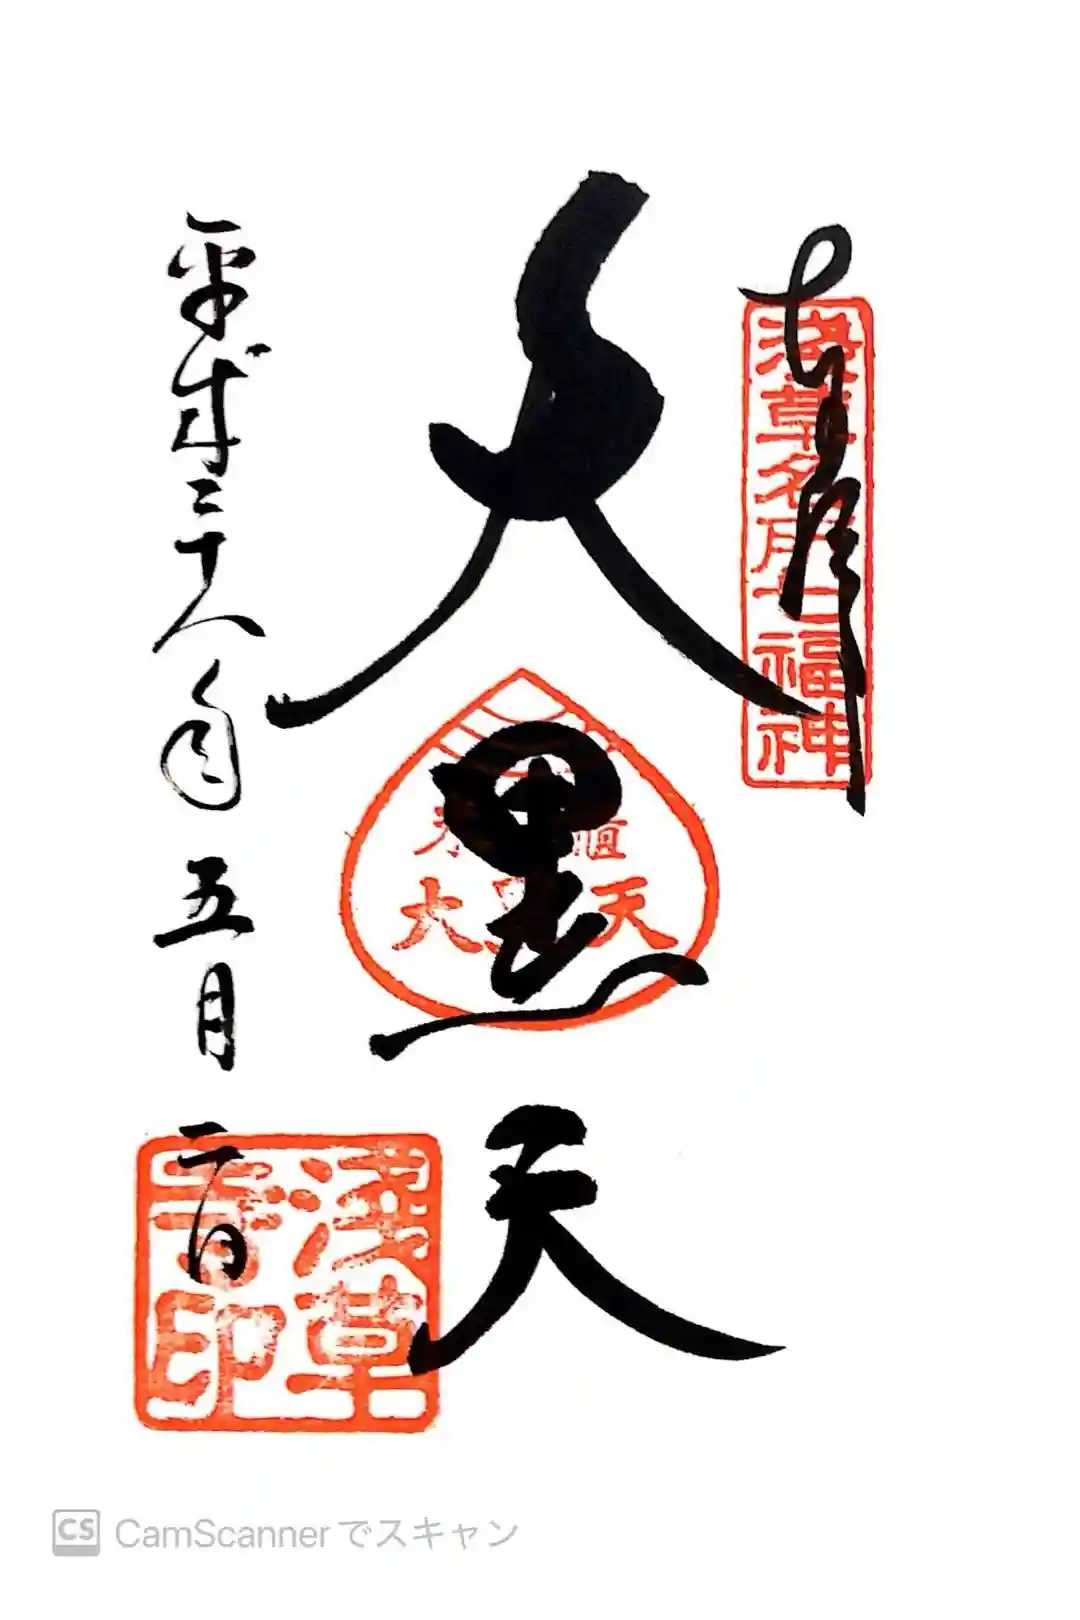 奉拝
浅草名所七福神
大黒天
大黒天
平成二十八年五月二日
浅草寺印
CS CamScannerでスキャン